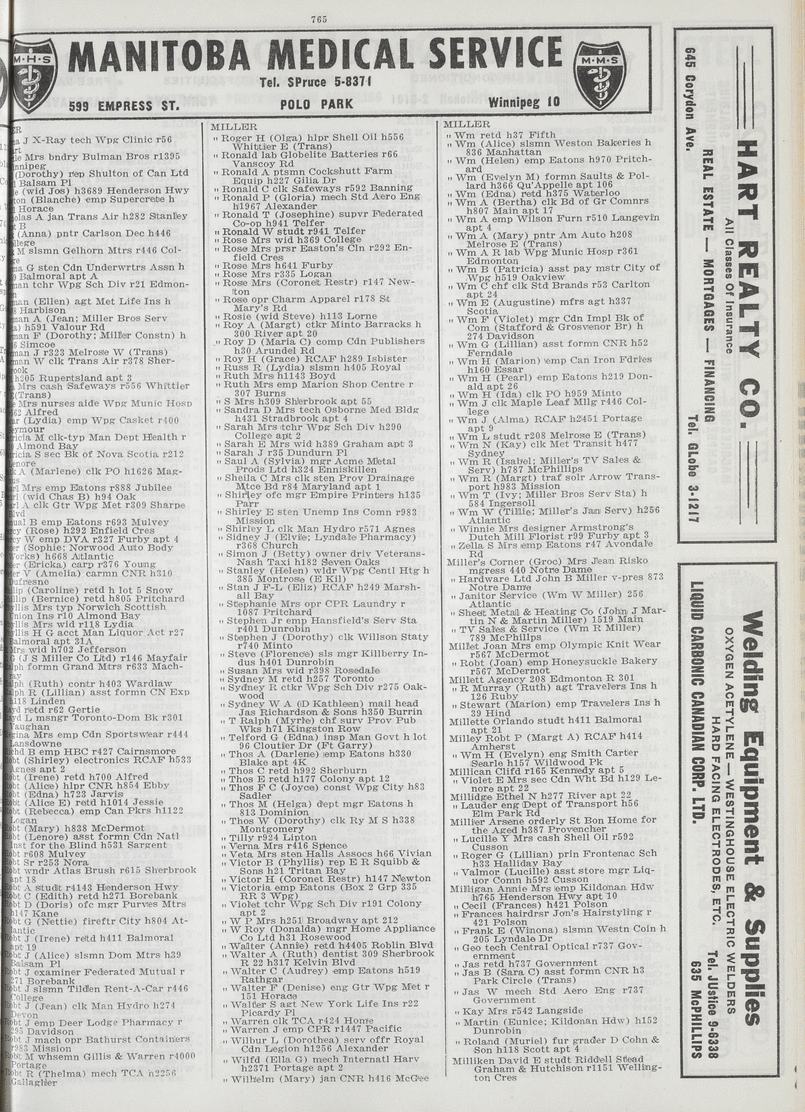 765
M·H·S
MANITOBA MEDICAL SERVICE
M·M·S
Tel. SPruce 5-8371
599 EMPRESS ST.
POLO PARK
Winnipeg 10
J X-Ray tech Wpg Clinic r56
Mrs bndry Bulman Bros r1395
(Dorothy) rep Shulton of Can Ltd
Balsam Pl
(wid Jos) h3689 Henderson Hwy
(Blanche) emp Supercrete h
Horace
A jan Trans Air h282 Stanley
B
(Anna) pntr Carlson Dec h446
M slsmn Gelhorn Mtrs r446 Col-
G sten Cdn Underwrtrs Assn h
Balmoral apt A
tchr Wpg Sch Div r21 Edmon-
(Ellen) agt Met Life Ins h
Harbison
A (Jean; Miller Bros Serv
h591 Valour Rd
F (Dorothy; Miller Constn) h
Simcoe
J r323 Melrose W (Trans)
W clk Trans Air r378 Sher-
h205 Rupertsland apt 3
Mrs cash Safeways r556 Whittier
(Trans)
Mrs nurses aide Wpg Munic Hosp
Alfred
(Lydia) emp Wpg Casket r400
M clk-typ Man Dept Health r
Almond Bay
S sec Bk of Nova Scotia r212
A (Marlene) clk PO h1626 Mag-
Mrs emp Eatons r888 Jubilee
(wid Chas B) h94 Oak
A clk Gtr Wpg Met r309 Sharpe
B emp Eatons r693 Mulvey
(Rose) h292 Enfield Cres
W emp DVA r327 Furby apt 4
(Sophie; Norwood Auto Body
h668 Atlantic
(Ericka) carp r376 Young
V (Amelia) carmn CNR h310
(Caroline) retd h lot 5 Snow
(Bernice) retd h805 Pritchard
Mrs typ Norwich Scottish
Ins r10 Almond Bay
Mrs wid r118 Lydia
H G acct Man Liquor Act r27
apt 31A
Mrs wid h702 Jefferson
G (J S Miller Co Ltd) r146 Mayfair
formn Grand Mtrs r633 Mach-
(Ruth) contr h403 Wardlaw
R (Lillian) asst formn CN Exp
Linden
retd r62 Gertie
L msngr Toronto-Dom Bk r301
Vaughan
Mrs emp Cdn Sportswear r444
Lansdowne
B emp HBC r427 Cairnsmore
(Shirley) electronics RCAF h533
apt 2
(Irene) retd h700 Alfred
(Alice) hlpr CNR h854 Ebby
(Edna) h723 Jarvis
(Alice E) retd h1014 Jessie
(Rebecca) emp Can Pkrs h1122
Logan
(Mary) h838 McDermot
(Lenore) asst formn Cdn Natl
Inst for the Blind h531 Sargent
r608 Mulvey
Sr r253 Nora
wndr Atlas Brush r615 Sherbrook
apt 18
A studt r4143 Henderson Hwy
C (Edith) retd h271 Borebank
D (Doris) ofc mgr Purves Mtrs
h147 Kane
G (Nettie) fireftr City h804 At-
lantic
J (Irene) retd h411 Balmoral
apt 19
J (Alice) slsmn Dom Mtrs h39
Balsam Pl
J examiner Federated Mutual r
271 Borebank
J slsmn Tilden Rent-A-Car r446
College
J (Jean) clk Man Hydro h274
Devon
J emp Deer Lodge Pharmacy r
Davidson
J mach opr Bathurst Containers
r983 Mission
M whsemn Gillis & Warren r4000
Portage
R (Thelma) mech TCA h2256
Gallagher
MILLER
" Roger H (Olga) hlpr Shell Oil h556
Whittier E (Trans)
" Ronald lab Globelite Batteries r66
Vanscoy Rd
" Ronald A ptsmn Cockshutt Farm
Equip h227 Gilia Dr
" Ronald C clk Safeways r592 Banning
" Ronald P (Gloria) mech Std Aero Eng
h1967 Alexander
" Ronald T (Josephine) supvr Federated
Co-op h941 Telfer
" Ronald W studt r941 Telfer
" Rose Mrs wid h369 College
" Rose Mrs prsr Easton's Cln r292 En-
field Cres
" Rose Mrs h641 Furby
" Rose Mrs r335 Logan
" Rose Mrs (Coronet Restr) r147 New-
ton
" Rose opr Charm Apparel r178 St
Mary's Rd
" Rosie (wid Steve) h113 Lorne
" Roy A (Margt) ctkr Minto Barracks h
300 River apt 20
" Roy D (Maria C) comp Cdn Publishers
h30 Arundel Rd
" Roy H (Grace) RCAF h289 Isbister
" Russ R (Lydia) slsmn h405 Royal
" Ruth Mrs h1143 Boyd
" Ruth Mrs emp Marion Shop Centre r
307 Burns
" S Mrs h309 Sherbrook apt 55
" Sandra D Mrs tech Osborne Med Bldg
h431 Stradbrook apt 4
" Sarah Mrs tchr Wpg Sch Div h290
College apt 2
" Sarah E Mrs wid h389 Graham apt 3
" Sarah J r35 Dundurn Pl
" Saul A (Sylvia) mgr Acme Metal
Prods Ltd h324 Enniskillen
" Sheila C Mrs clk sten Prov Drainage
Mtce Bd r84 Maryland apt 1
" Shirley ofc mgr Empire Printers h135
Parr
" Shirley E sten Unemp Ins Comn r983
Mission
" Shirley L clk Man Hydro r571 Agnes
" Sidney J (Elvie; Lyndale Pharmacy)
r368 Church
" Simon J (Betty) owner driv Veterans-
Nash Taxi h182 Seven Oaks
" Stanley (Helen) wldr Wpg Centl Htg h
385 Montrose (E Kil)
" Stan F-L (Eliz) RCAF h249 Marsh-
all Bay
" Stephanie Mrs opr CPR Laundry r
1087 Pritchard
" Stephen Jr emp Hansfield's Serv Sta
r401 Dunrobin
" Stephen J (Dorothy) clk Willson Staty
r740 Minto
" Steve (Florence) sls mgr Killberry In-
dus h401 Dunrobin
" Susan Mrs wid r398 Rosedale
" Sydney M retd h257 Toronto
" Sydney R ctkr Wpg Sch Div r275 Oak-
wood
" Sydney W A (D Kathleen) mail head
Jas Richardson & Sons h350 Burrin
" T Ralph (Myrle) chf surv Prov Pub
Wks h71 Kingston Row
" Telford G (Edna) insp Man Govt h lot
96 Cloutier Dr (Ft Garry)
" Thos A (Darlene) emp Eatons h330
Blake apt 4K
" Thos C retd h992 Sherburn
" Thos E retd h177 Colony apt 12
" Thos F C (Joyce) const Wpg City h83
Sadler
" Thos M (Helga) dept mgr Eatons h
813 Dominion
" Thos W (Dorothy) clk Ry M S h338
Montgomery
" Tilly r924 Lipton
" Verna Mrs r416 Spence
" Veta Mrs sten Halls Assocs h66 Vivian
" Victor B (Phyllis) rep E R Squibb &
Sons h21 Tritan Bay
" Victor H (Coronet Restr) h147 Newton
" Victoria emp Eatons (Box 2 Grp 335
RR 3 Wpg)
" Violet tchr Wpg Sch Div r191 Colony
apt 2
" W P Mrs h251 Broadway apt 212
" W Roy (Donalda) mgr Home Appliance
Co Ltd h31 Rosewood
" Walter (Annie) retd h4405 Roblin Blvd
" Walter A (Ruth) dentist 309 Sherbrook
R 22 h317 Kelvin Blvd
" Walter C (Audrey) emp Eatons h519
Rathgar
" Walter F (Denise) eng Gtr Wpg Met r
151 Horace
" Walter S agt New York Life Ins r22
Picardy Pl
" Warren clk TCA r424 Home
" Warren J emp CPR r1447 Pacific
" Wilbur L (Dorothea) serv offr Royal
Cdn Legion h1256 Alexander
" Wilfd (Ella G) mech Internatl Harv
h2371 Portage apt 2
" Wilhelm (Mary) jan CNR h416 McGee
MILLER
" Wm retd h37 Fifth
" Wm (Alice) slsmn Weston Bakeries h
836 Manhattan
" Wm (Helen) emp Eatons h970 Pritch-
ard
" Wm (Evelyn M) formn Saults & Pol-
lard h366 Qu'Appelle apt 106
" Wm (Edna) retd h375 Waterloo
" Wm A (Bertha) clk Bd of Gr Comnrs
h807 Main apt 17
" Wm A emp Wilson Furn r510 Langevin
apt 4
" Wm A (Mary) pntr Am Auto h208
Melrose E (Trans)
" Wm A R lab Wpg Munic Hosp r361
Edmonton
" Wm B (Patricia) asst pay mstr City of
Wpg h519 Oakview
" Wm C chf clk Std Brands r53 Carlton
apt 24
" Wm E (Augustine) mfrs agt h337
Scotia
" Wm F (Violet) mgr Cdn Impl Bk of
Com (Stafford & Grosvenor Br) h
274 Davidson
" Wm G (Lillian) asst formn CNR h52
Ferndale
" Wm H (Marion) emp Can Iron Fdries
h160 Essar
" Wm H (Pearl) emp Eatons h219 Don-
ald apt 26
" Wm H (Ida) clk PO h959 Minto
" Wm J clk Maple Leaf Mllg r446 Col-
lege
" Wm J (Alma) RCAF h2451 Portage
apt 9
" Wm L studt r208 Melrose E (Trans)
" Wm N (Kay) clk Met Transit h477
Sydney
" Wm R (Isabel; Miller's TV Sales &
Serv) h787 McPhillips
" Wm R (Margt) traf solr Arrow Trans-
port h983 Mission
" Wm T (Ivy; Miller Bros Serv Sta) h
584 Ingersoll
" Wm W (Tillie; Miller's Jan Serv) h256
Atlantic
" Winnie Mrs designer Armstrong's
Dutch Mill Florist r99 Furby apt 3
" Zella S Mrs emp Eatons r47 Avondale
Rd
Miller's Corner (Groc) Mrs Jean Risko
mgress 440 Notre Dame
" Hardware Ltd John B Miller v-pres 873
Notre Dame
" Janitor Service (Wm W Miller) 256
Atlantic
" Sheet Metal & Heating Co (John J Mar-
tin N & Martin Miller) 1519 Main
" TV Sales & Service (Wm R Miller)
789 McPhillips
Millet Joan Mrs emp Olympic Knit Wear
r567 McDermot
" Robt (Joan) emp Honeysuckle Bakery
r567 McDermot
Millett Agency 208 Edmonton R 301
" R Murray (Ruth) agt Travelers Ins h
126 Ruby
" Stewart (Marion) emp Travelers Ins h
39 Hind
Millette Orlando studt h411 Balmoral
apt 21
Milley Robt P (Margt A) RCAF h414
Amherst
" Wm H (Evelyn) eng Smith Carter
Searle h157 Wildwood Pk
Millican Clifd r165 Kennedy apt 5
" Violet E Mrs sec Cdn Wht Bd h129 Le-
nore apt 22
Millidge Ethel N h277 River apt 22
" Lauder eng Dept of Transport h56
Elm Park Rd
Millier Arsene orderly St Bon Home for
the Aged h387 Provencher
" Lucille Y Mrs cash Shell Oil r592
Cusson
" Roger G (Lillian) prin Frontenac Sch
h33 Halliday Bay
" Valmor (Lucille) asst store mgr Liq-
uor Comn h592 Cusson
Milligan Annie Mrs emp Kildonan Hdw
h765 Henderson Hwy apt 10
" Cecil (Frances) h421 Polson
" Frances hairdrsr Jon's Hairstyling r
421 Polson
" Frank E (Winona) slsmn Westn Coin h
205 Lyndale Dr
" Geo tech Central Optical r737 Gov-
ernment
" Jas retd h737 Government
" Jas B (Sara C) asst formn CNR h3
Park Circle (Trans)
" Jas W mech Std Aero Eng r737
Government
" Kay Mrs r542 Langside
" Martin (Eunice; Kildonan Hdw) h152
Dunrobin
" Roland (Muriel) fur grader D Cohn &
Son h118 Scott apt 4
Milliken David E studt Riddell Stead
Graham & Hutchison r1151 Welling-
ton Cres
HART REALTY CO.
All Classes Of Insurance
REAL ESTATE — MORTGAGES — FINANCING
645 Corydon Ave.
Tel. GLobe 3-1217
Welding Equipment & Supplies
OXYGEN ACETYLENE — WESTINGHOUSE ELECTRIC WELDERS
HARD FACING ELECTRODES, ETC.
Tel. JUstice 9-8338
LIQUID CARBONIC CANADIAN CORP. LTD.
635 McPHILLIPS